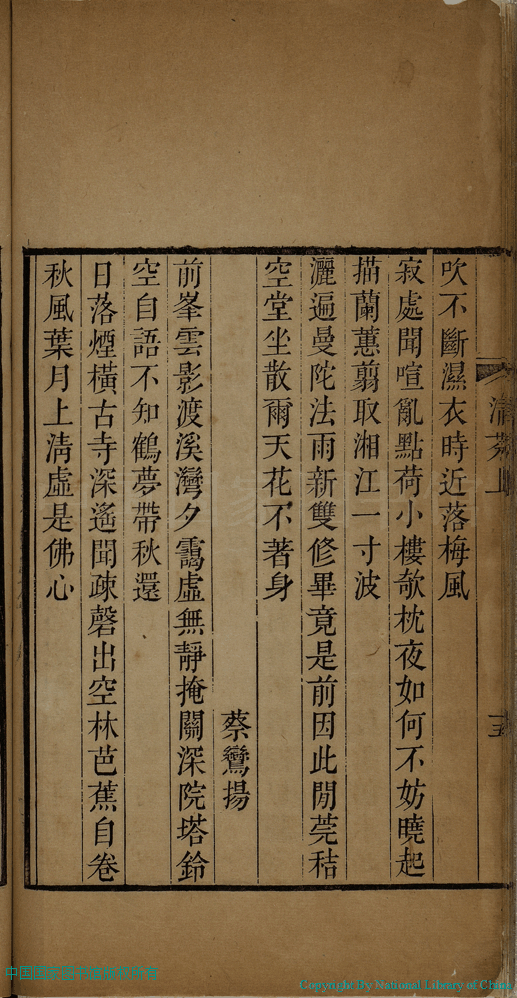 吹不斷濕衣時近落梅風
寂處聞喧亂點荷小樓欹枕夜如何不妨曉起
描蘭蕙翦取湘江一寸波
灑遍曼陀法雨新雙修畢竟是前因此閒莞秸
空堂坐散爾天花不著身
蔡鸞揚
前峯雲影渡溪灣夕靄虛無靜掩關深院塔鈴
空自語不知鶴夢帶秋還
日落煙橫古寺深遙聞疎磬出空林芭蕉自卷
秋風葉月上清虛是佛心
Copyright By National Library of China